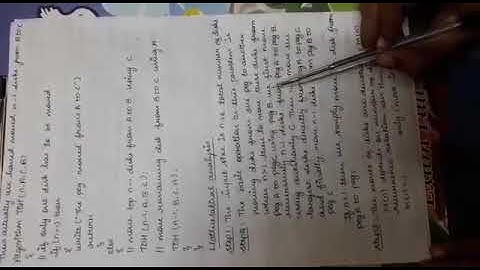 Then actually we have moved n-1 disks from B to C
Algorithm TOH (n, A, C, B)
{
// if only one disk has to be moved
if (n=1) then
{
write ("The peg moved from A to C")
return
}
else
{
// move top n-1 disks from A to B using C
TOH (n-1, A, B, C);
// move remaining disk from B to C using A
TOH (n-1, B, C, A);
}
}
Mathematical analysis
Step 1: The input size is n i.e. total number of disks
Step 2: The basic operation in this problem is
moving disks from one peg to another
when n>1 then to move these disks from
peg A to peg C using peg B we first move
recursively n-1 disks from peg A to peg B
using auxiliary C. Then we move the
largest disk directly from peg A to peg C
and finally move n-1 disks from peg B to
peg C
If n=1 then we simply move the disk from
peg A to peg C
Step 3: The moves of disks are denoted
M(n) depends on number of
recurrence relation can
only